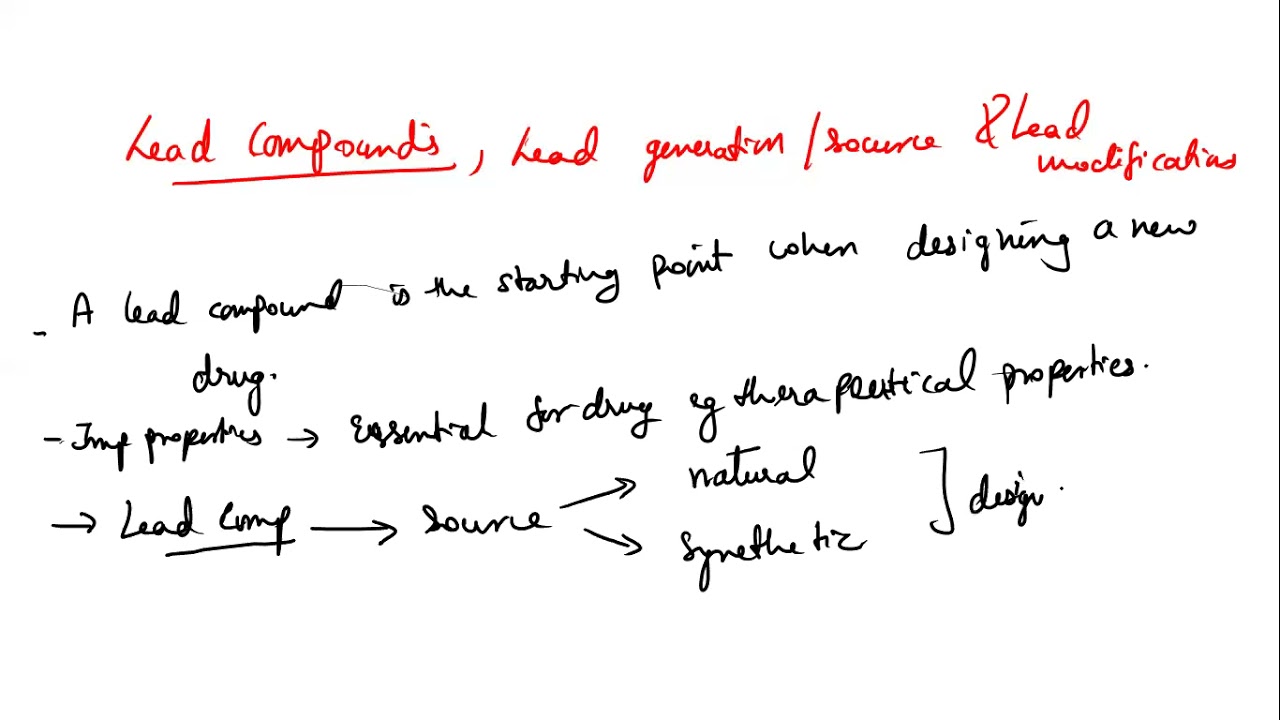 Lead Compounds, Lead generation / source & Lead modifications
- A lead compound is the starting point when designing a new
drug.
- Imp properties → Essential for drug eg therapeutical properties.
→ Lead Comp → source → natural
→ synethetic ] design.